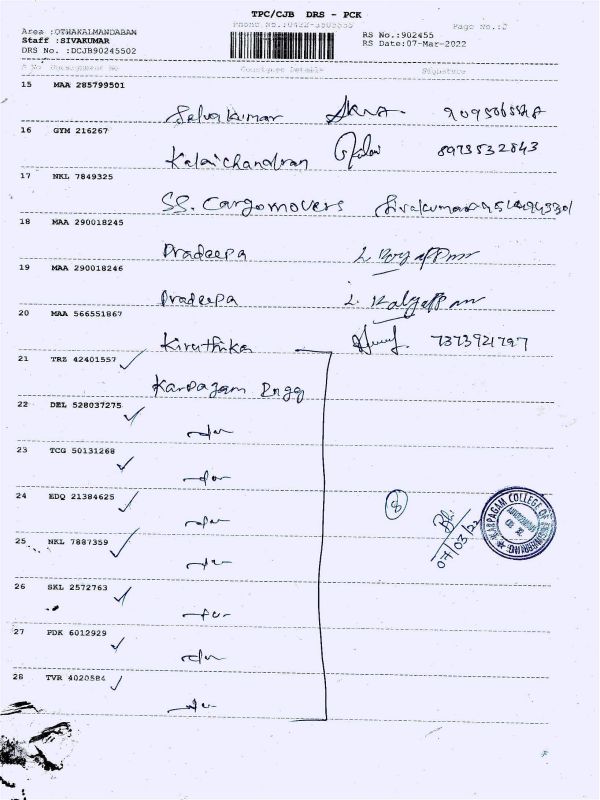 TPC/CJB DRS - PCK
Page No.:2
Area :OTHAKALMANDABAM
Staff :SIVAKUMAR
DRS No. :DCJB90245502
RS No.:902455
RS Date:07-Mar-2022
S No Consignment No Consignee Details Signature
15 MAA 285799501
Selvakumar
16 GYM 216267
Kalaichandran 8973532843
17 NKL 7849325
SS. Cargomovers Sivakumar
18 MAA 290018245
Pradeepa
19 MAA 290018246
Pradeepa
20 MAA 566551867
Kiruthika 7373921797
21 TRZ 42401557
Karpagam Engg
22 DEL 528037275
23 TCG 50131268
24 EDQ 21384625
8
07/03/22
KARPAGAM COLLEGE OF ENGINEERING
25 NKL 7887359
26 SKL 2572763
27 PDK 6012929
28 TVR 4020584